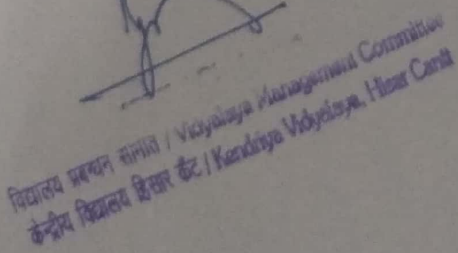 विद्यालय प्रबन्धन समिति / Vidyalaya Management Committee
केन्द्रीय विद्यालय हिसार कैंट / Kendriya Vidyalaya, Hisar Cantt